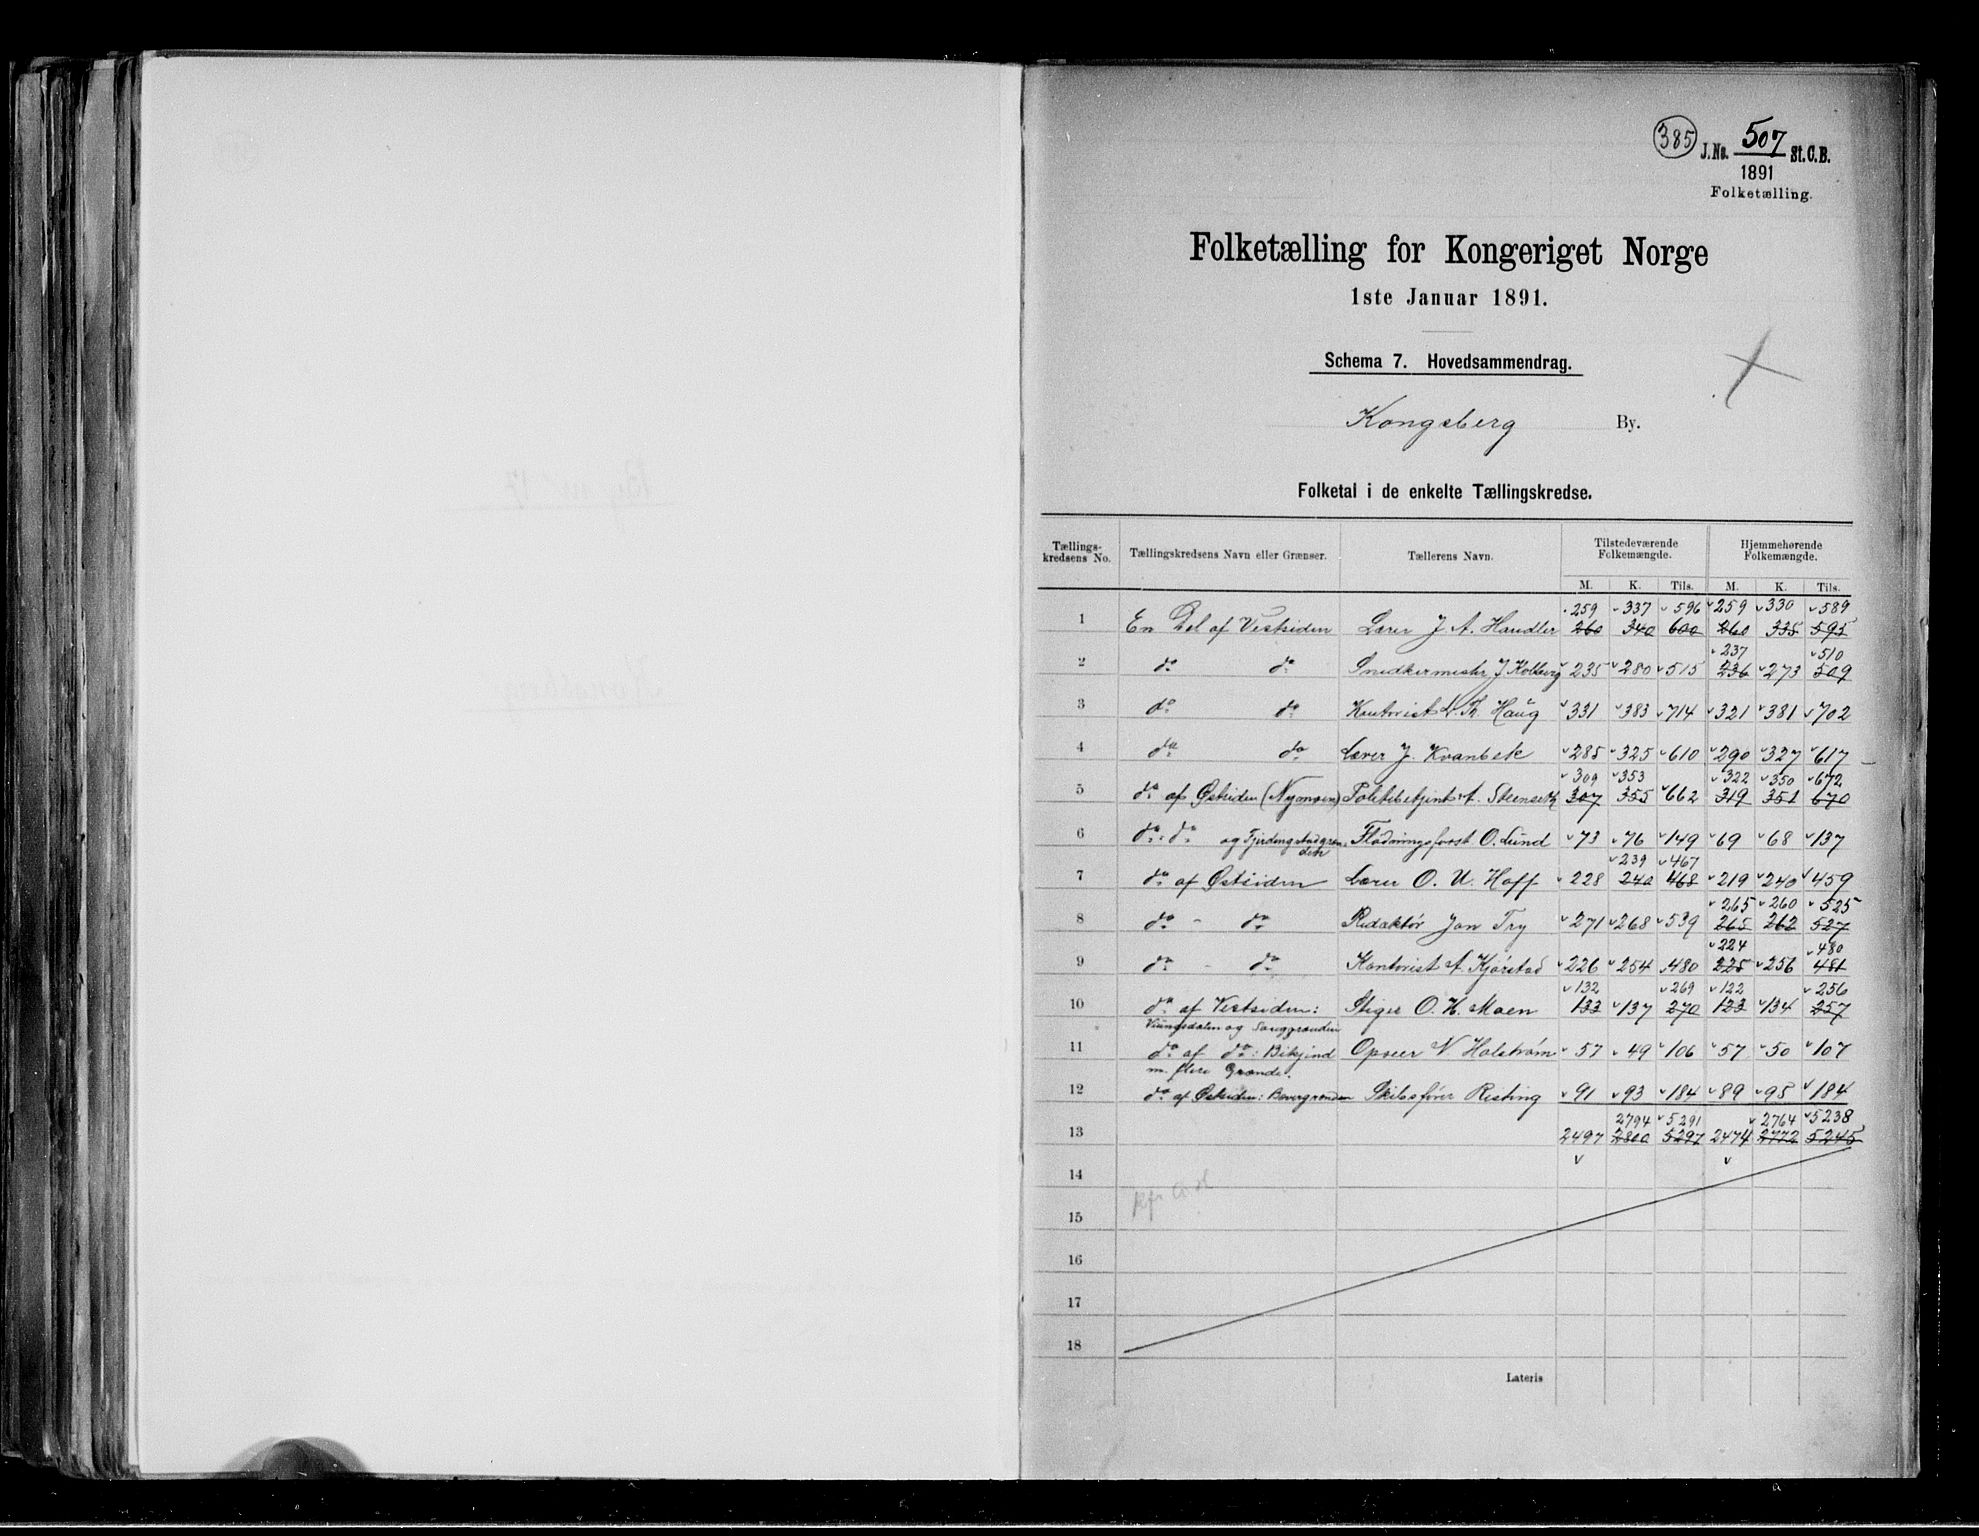 385 J.No. 507 St.C.B.
1891
Folketælling.
Folketælling for Kongeriget Norge
1ste Januar 1891.
Schema 7. Hovedsammendrag.
Kongsberg By.
Folketal i de enkelte Tællingskredse.
Tællings-kredsens No. Tællingskredsens Navn eller Grænser. Tællerens Navn. Tilstedeværende Folkemængde. Hjemmehørende Folkemængde.
M. K. Tils. M. K. Tils.
259 337 596 259 330 589
1 En Del af Vestsiden Lærer J. A. Handler 260 340 600 260 335 595
237 510
2 do do Snedkermester J Kolberg 235 280 515 236 273 509
3 do do Kontorist Haug 331 383 714 321 381 702
4 do do Lærer J. Kvanbek 285 325 610 290 327 617
309 353 322 350 672
5 do af Østsiden (Nymoen) Politibetjent A. 307 355 662 319 351 670
6 do do og Fjerdingstadgrænden O. Lund 73 76 149 69 68 137
239 467
7 do af Østsiden Lærer O. U. Hoff 228 240 468 219 240 459
265 260 525
8 do - do Redaktør Jon Try 271 268 539 265 262 527
224 480
9 do - do Kontorist A. Kjørstad 226 254 480 225 256 481
132 269 122 256
10 do af Vestsiden: Stiger O. H. Moen 133 137 270 123 134 257
og
11 do af do: Bikjind Opseer N. Holstrøm 57 49 106 57 50 107
m. flere Grænde.
12 do af Østsiden: Bevergrænden Risting 91 93 184 89 95 184
2794 5291 2764 5238
13 2497 2800 5297 2474 2772 5245
14
15
16
17
18
Lateris